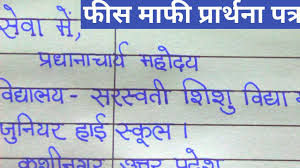 फीस माफी प्रार्थना पत्र
सेवा में,
प्रधानाचार्य महोदय
विद्यालय - सरस्वती शिशु विद्या
जुनियर हाई स्कूल ।
काशीनगर उत्तर प्रदेश